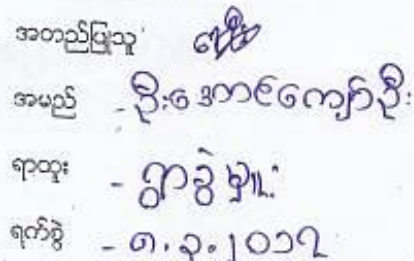 အတည်ပြုသူ
အမည် - ဦးအောင်ကျော်ဦး
ရာထူး - ရွာခွဲမှူး
ရက်စွဲ - ၈.၃.၂၀၁၇